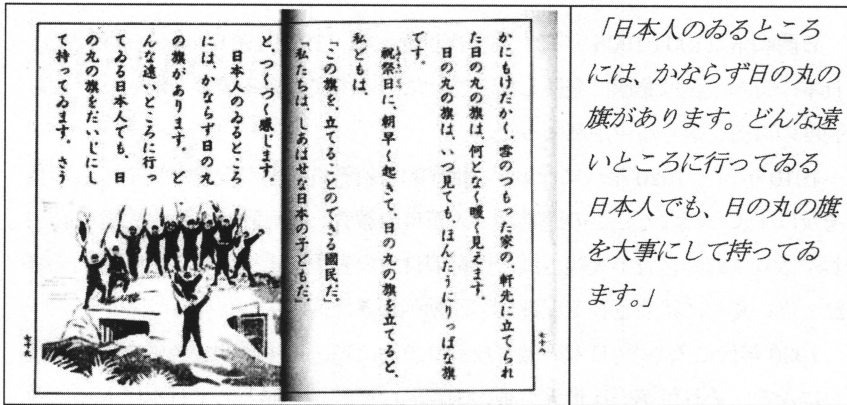 かにもけだかく、雪のつもった家の、軒先に立てられ
た日の丸の旗は、何となく暖く見えます。
日の丸の旗は、いつ見ても、ほんたうにりっぱな旗
です。
祝祭日に、朝早く起きて、日の丸の旗を立てると、
私どもは、
「この旗を、立てることのできる國民だ。
「私たちは、しあはせな日本の子どもだ。」
七十八
と、つくづく感じます。
日本人のゐるところ
には、かならず日の丸
の旗があります。ど
んな遠いところに行っ
てゐる日本人でも、日
の丸の旗をだいじにし
て持ってゐます。さう
七十九
「日本人のゐるところ
には、かならず日の丸の
旗があります。どんな遠
いところに行ってゐる
日本人でも、日の丸の旗
を大事にして持ってゐ
ます。」